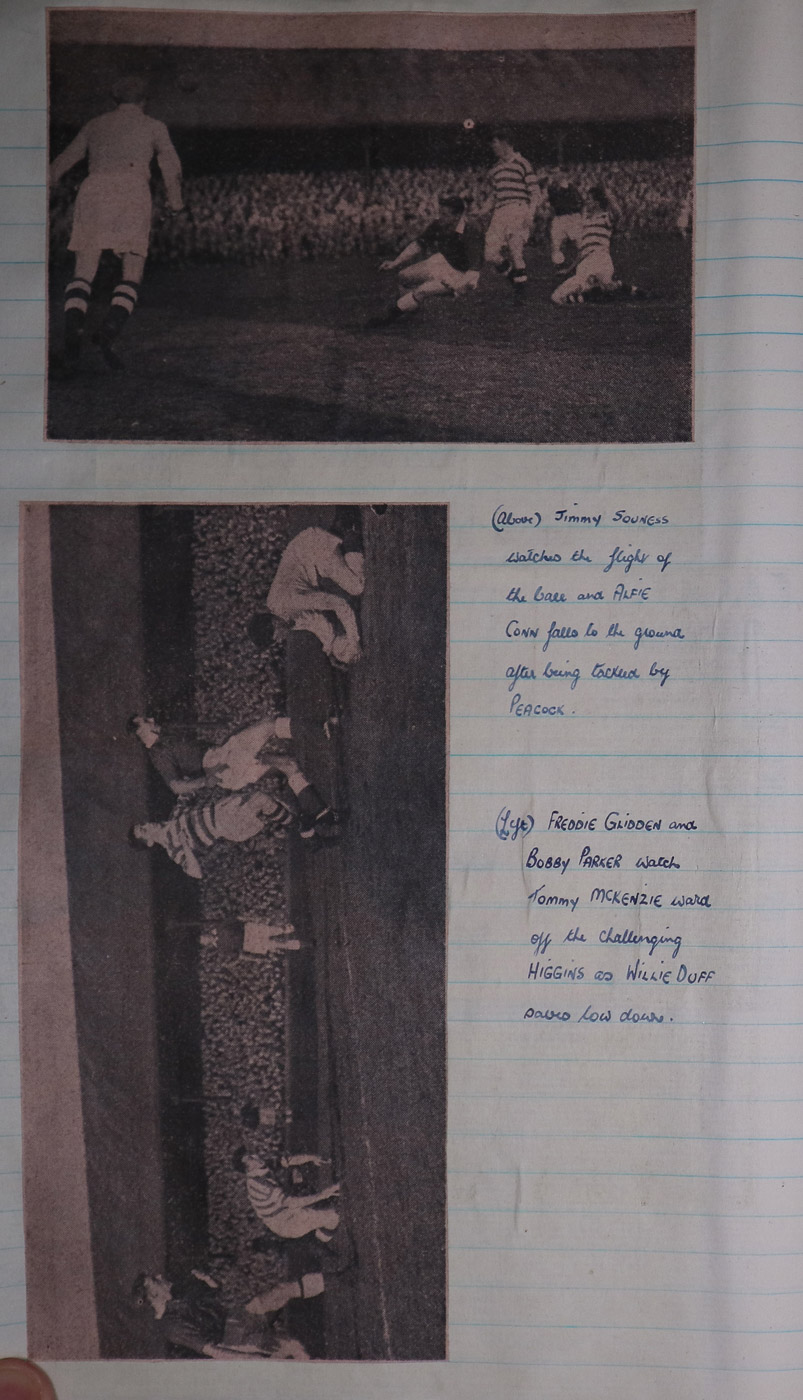 (Above) Jimmy SOUNESS
watches the flight of
the ball and ALFIE
CONN falls to the ground
after being tackled by
PEACOCK.
(Left) FREDDIE GLIDDEN and
BOBBY PARKER watch
Tommy MCKENZIE ward
off the challenging
HIGGINS as WILLIE DUFF
saves low down.